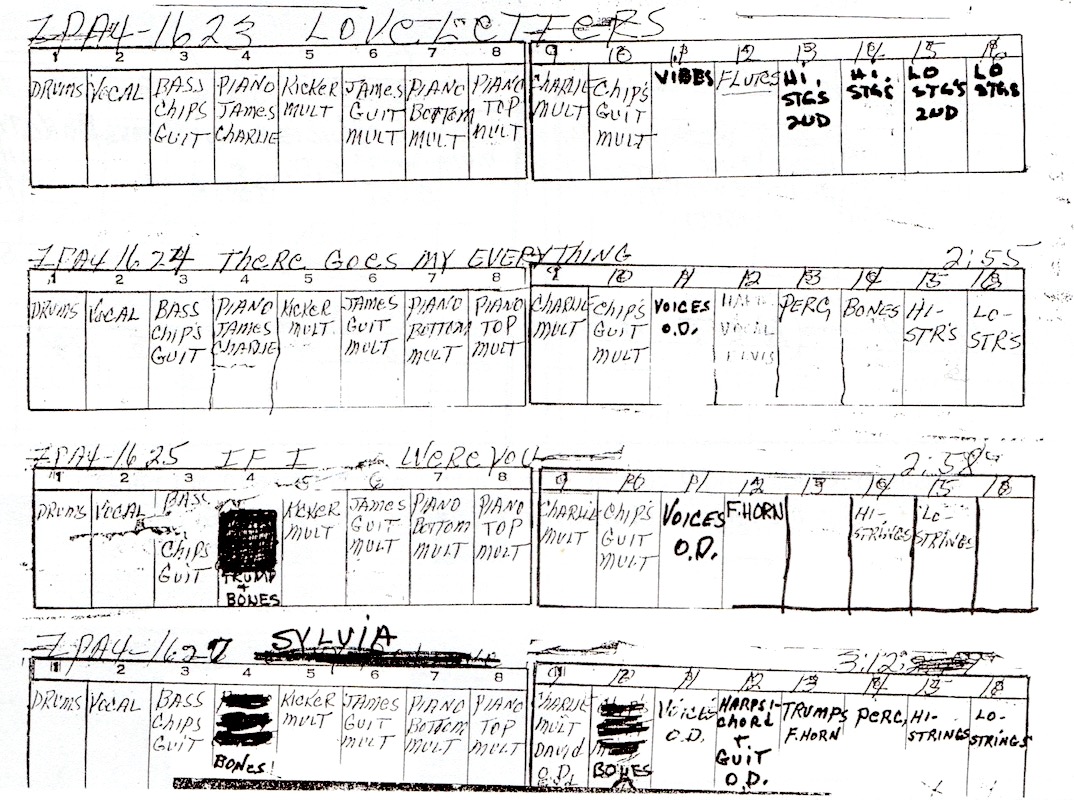 ZPA4-1623 LOVE LETTERS
1 2 3 4 5 6 7 8 9 10 11 12 13 14 15 16
DRUMS VOCAL BASS PIANO KICKER JAMES PIANO PIANO CHARLIE CHIP'S VIBES FLUTES HI. HI. LO LO
CHIPS JAMES MULT GUIT BOTTOM TOP MULT GUIT STGS STGS STG'S STGS
GUIT CHARLIE MULT MULT MULT MULT 2ND 2ND
ZPA4-1624 THERE GOES MY EVERYTHING 2:55
1 2 3 4 5 6 7 8 9 10 11 12 13 14 15 16
DRUMS VOCAL BASS PIANO KICKER JAMES PIANO PIANO CHARLIE CHIP'S VOICES PERC BONES HI- LO-
CHIP'S JAMES MULT GUIT BOTTOM TOP MULT GUIT O.D. VOCAL STR'S STR'S
GUIT CHARLIE MULT MULT MULT MULT ELVIS
ZPA4-1625 IF I WERE YOU 2:58
1 2 3 4 5 6 7 8 9 10 11 12 13 14 15 16
DRUMS VOCAL BASS KICKER JAMES PIANO PIANO CHARLIE CHIP'S VOICES F.HORN HI- LO-
CHIPS MULT GUIT BOTTOM TOP MULT GUIT O.D. STRINGS STRINGS
GUIT TRUMP MULT MULT MULT MULT
+
BONES
ZPA4-1627 SYLVIA 3:12
1 2 3 4 5 6 7 8 9 10 11 12 13 14 15 16
DRUMS VOCAL BASS KICKER JAMES PIANO PIANO CHARLIE VOICES HARPSI- TRUMPS PERC, HI- LO-
CHIPS MULT GUIT BOTTOM TOP MULT O.D. CHORD F.HORN STRINGS STRINGS
GUIT MULT MULT MULT DAVID +
BONES O.D. BONES GUIT
O.D.